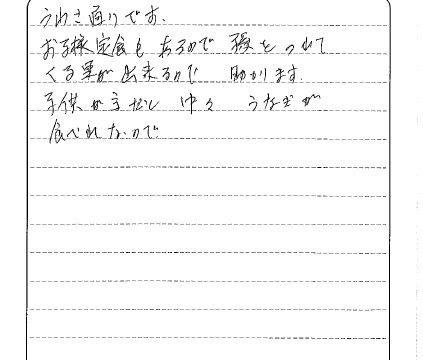 うわさ通りです。
お子様定食も あるので 孫を つれて
くる事が出来るので 助かります。
子供が主だと 中々 うなぎが
食べれないので